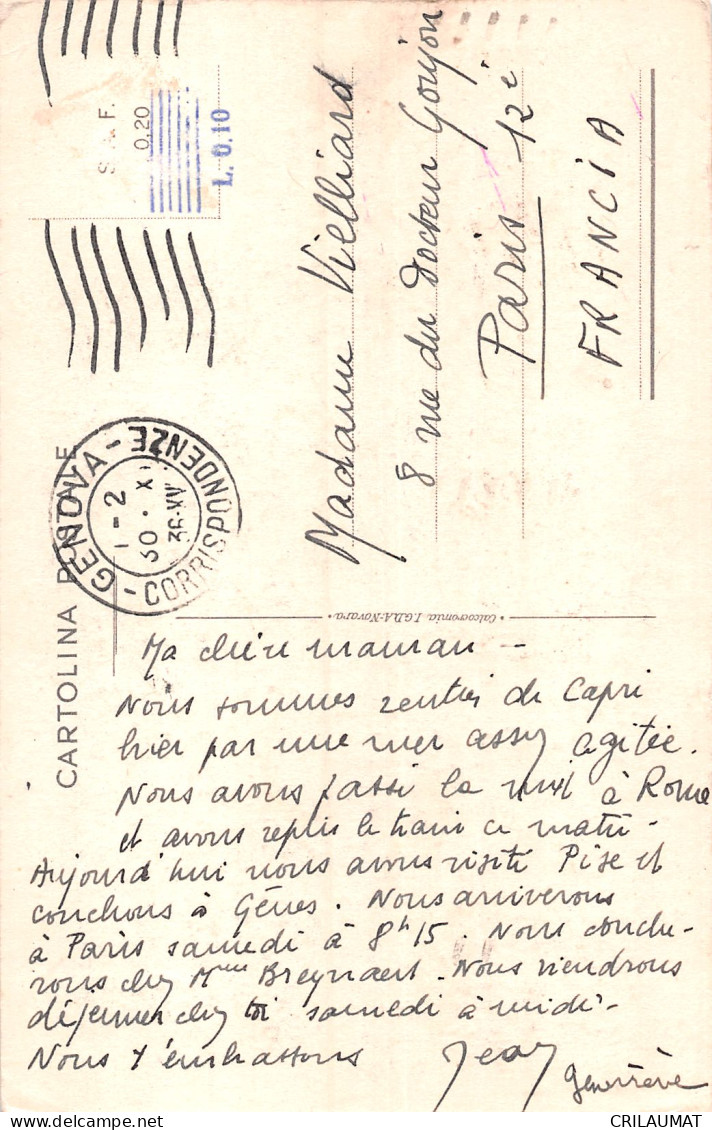 CARTOLINA POSTALE
S. A. F.
0,20
L. 0.10
GENOVA - CORRISPONDENZE
1-2
30 · XI
36·XV
Madame Vielliard
8 rue du Docteur Goujon
Paris 12e
FRANCIA
• Calcocromia I.G.D.A-Novara •
Ma chère maman -
Nous sommes rentrés de Capri
hier par une mer assez agitée.
Nous avons passé la nuit à Rome
et avons repris le train ce matin -
Aujourd'hui nous avons visité Pise et
couchons à Gênes. Nous arriverons
à Paris samedi à 8h15. Nous couche-
rons chez Mme Breynaert. Nous viendrons
déjeuner chez toi samedi à midi -
Nous t'embrassons Jean
Geneviève
CRILAUMAT